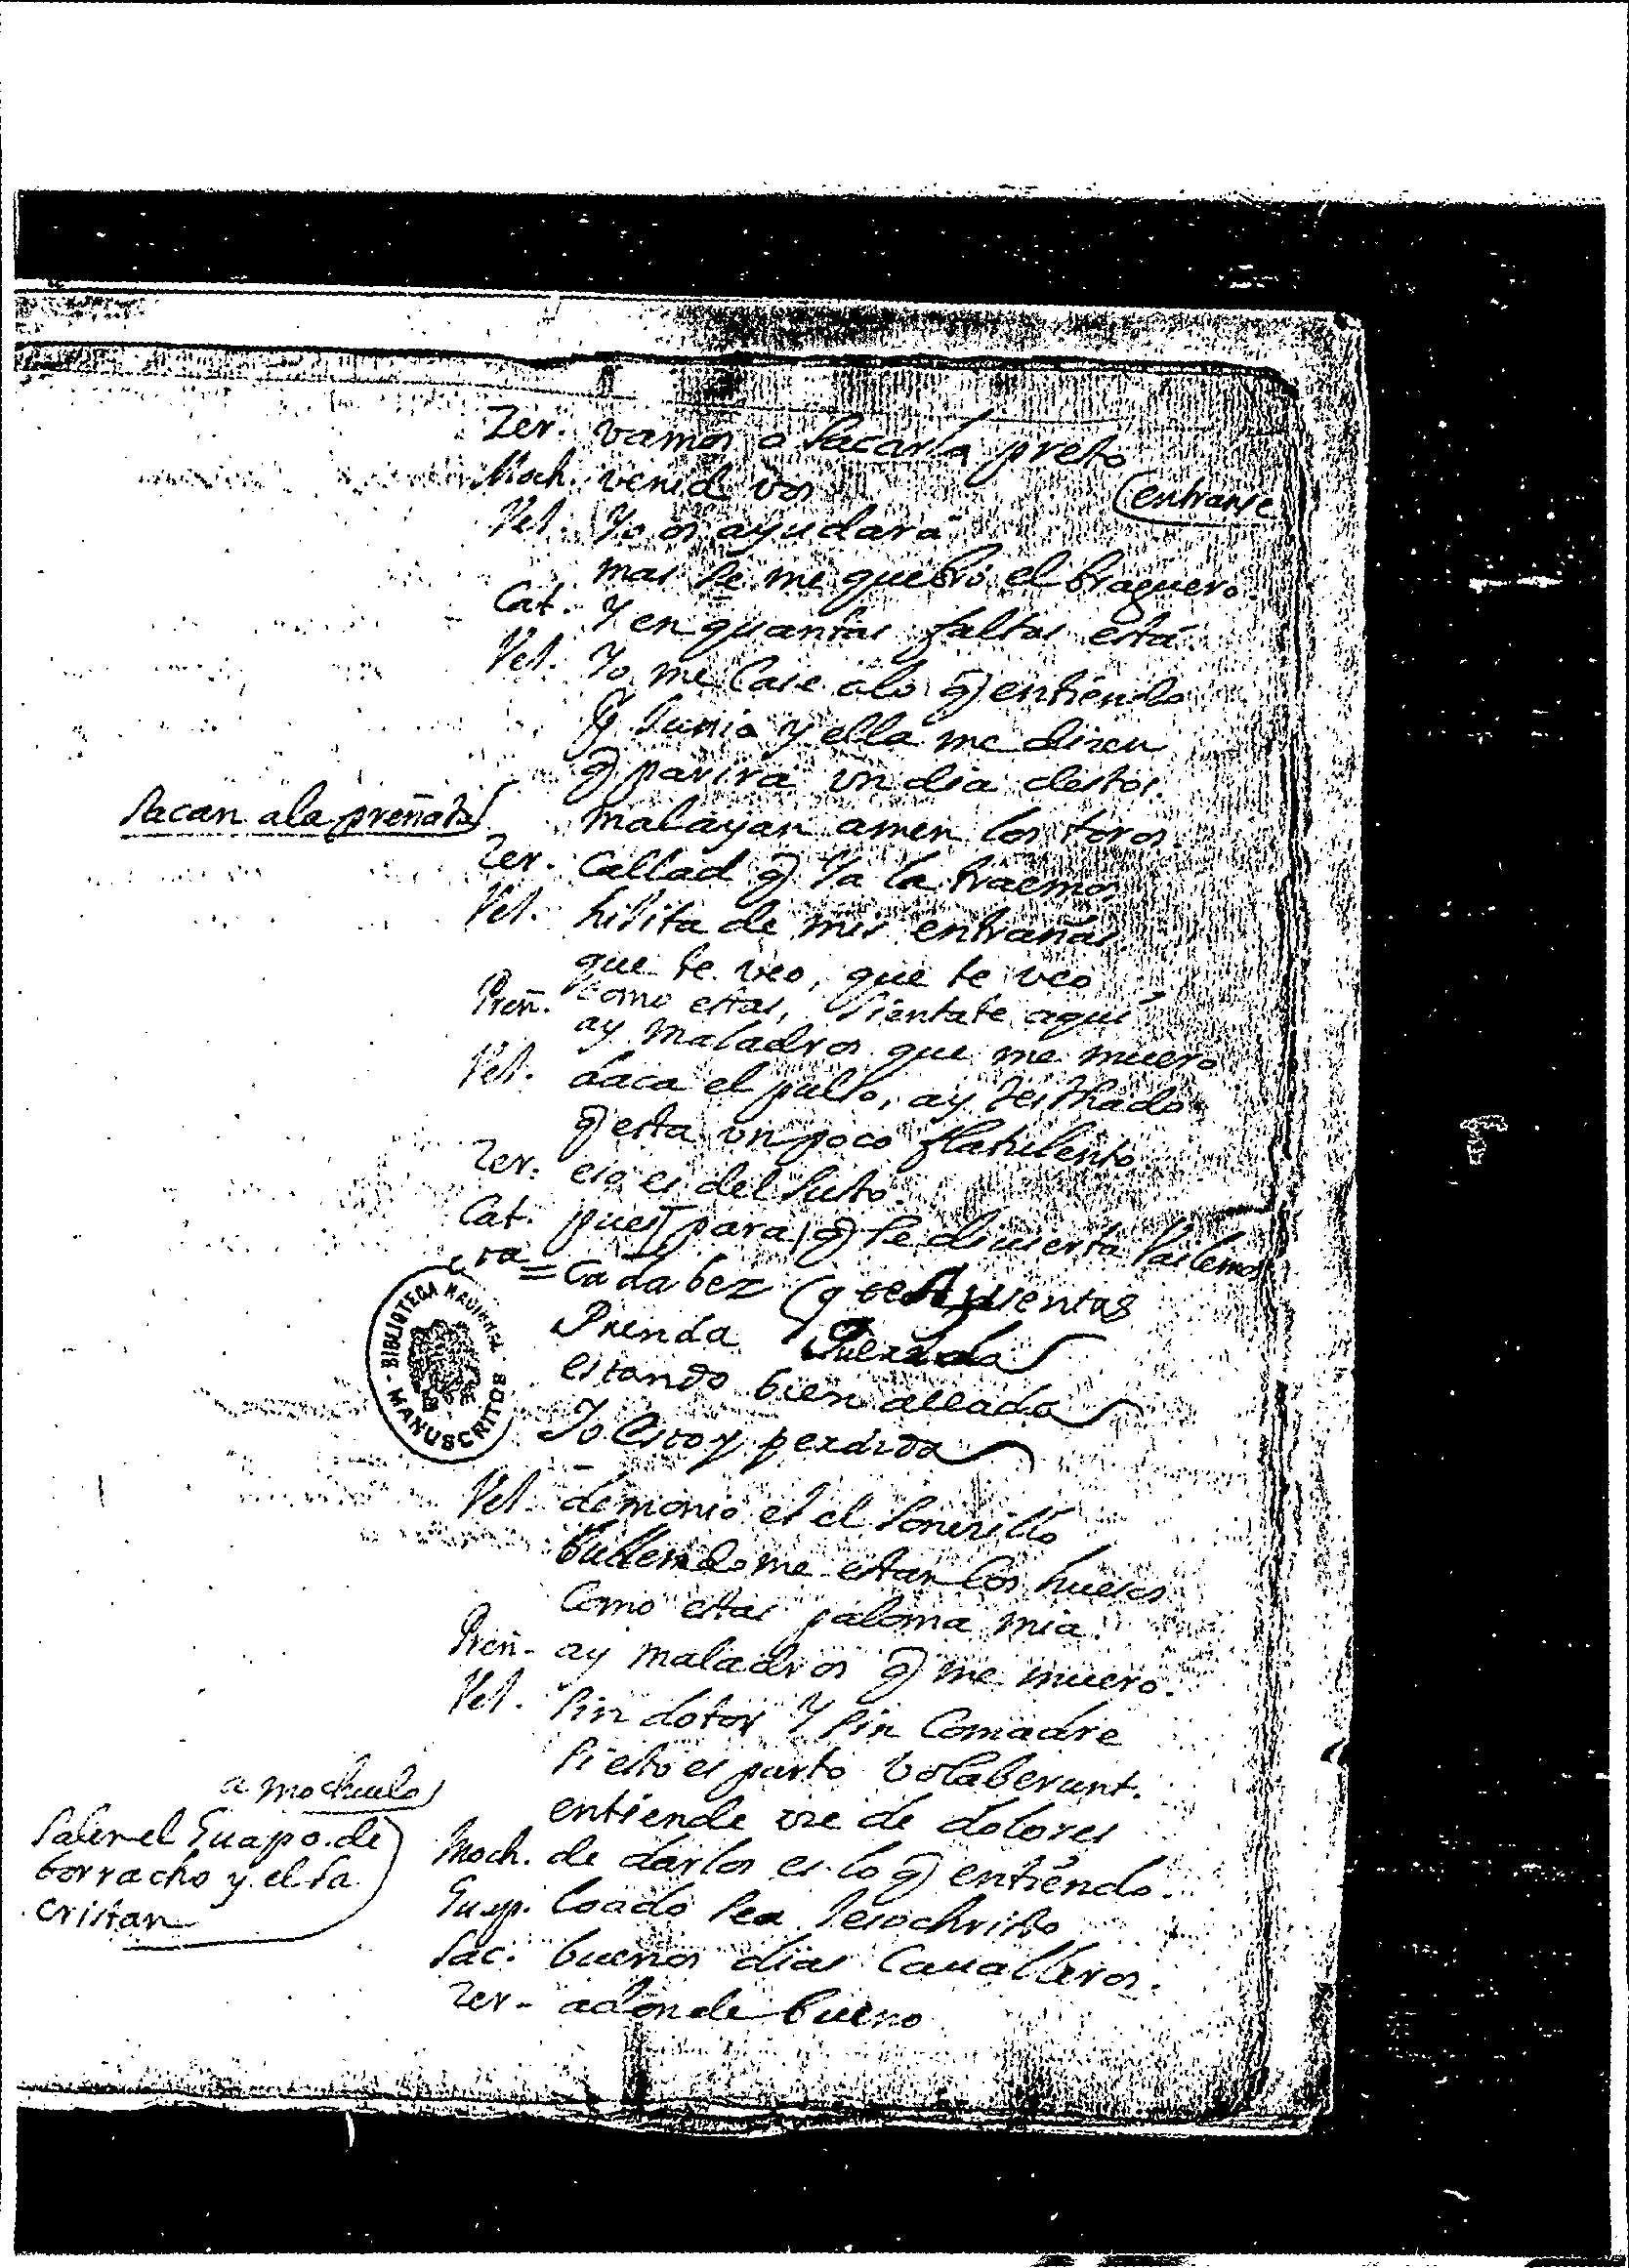 Zer. vamos a sacarla presto
Moch. venid vos (entranse
Vej. Yo os ayudara
mas se me quebró el braguero.
Cat. Y en quantas faltas está.
Vej. Yo me Case alo q̄ entiendo
Junio y ella me dizen
q̄ parirá vn dia destos.
Sacan ala preñada
malayan amen los toros.
Zer. Callad q̄ ya la traemos
Vej. hijita de mis entrañas
que te veo, que te veo,
como estas, sientate aqui
Preñ. ay maladros que me muero
Vej. daca el pulso, ay
q̄ esta vn poco flatulento
Zer. eso es del susto.
Cat. pues para q̄ se diuierta bailemos
Cada bez q te Auientas
Prenda
estando bien allado
Yo Estoy perdida
Vej. demonio es el sonezillo
bullendome estan los huesos
Como estas paloma mia.
Preñ. ay maladros q̄ me muero.
Vej. Sin dotor Y sin Comadre
si esto es parto volaberunt.
a mochuelo
entiende vze de dolores
Salen el Guapo de
borracho y el sa
cristan
Moch. de darlos es lo q̄ entiendo.
Guap. loado sea Jesochristo
Sac. buenos dias Caualleros.
Zer. adonde bueno
BIBLIOTECA NACIONAL
MANUSCRITOS